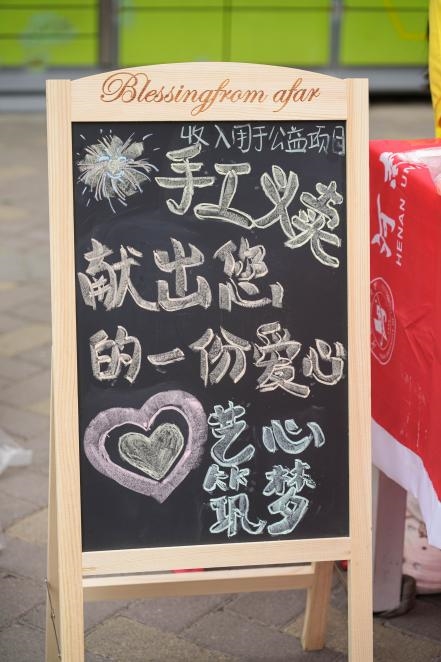 Blessingfrom afar
收入用于公益项目
手工义卖
献出您
的一份爱心
艺心
筑梦
河
HENAN U